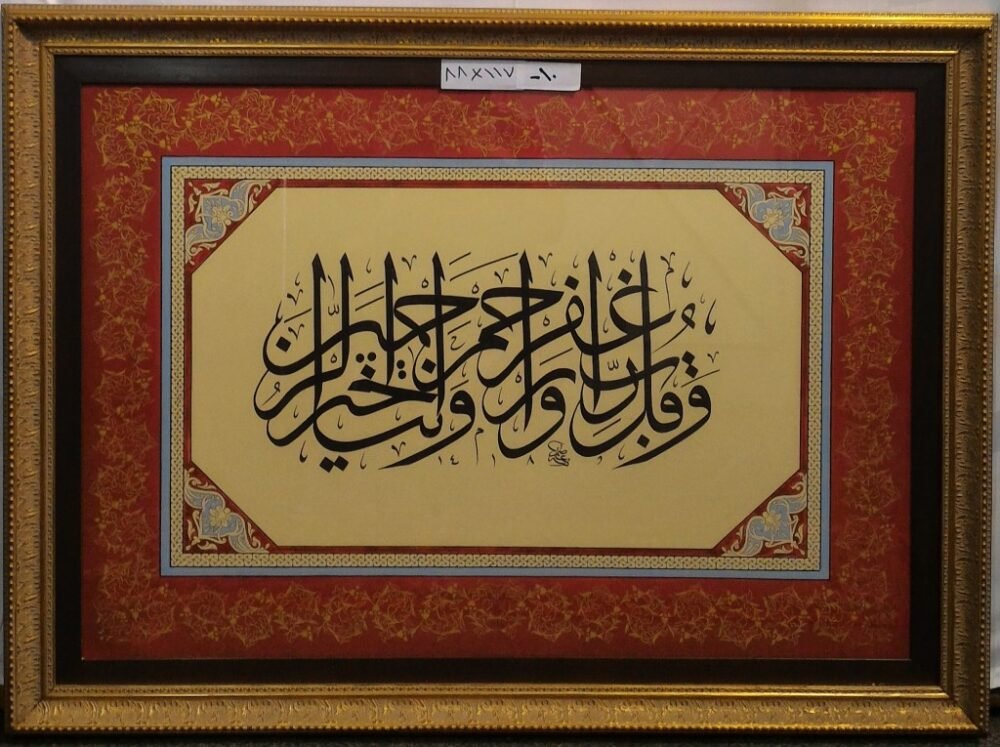 ٨٨×١١٧
وقل رب اغفر وارحم وأنت خير الراحمين
١٤١٨